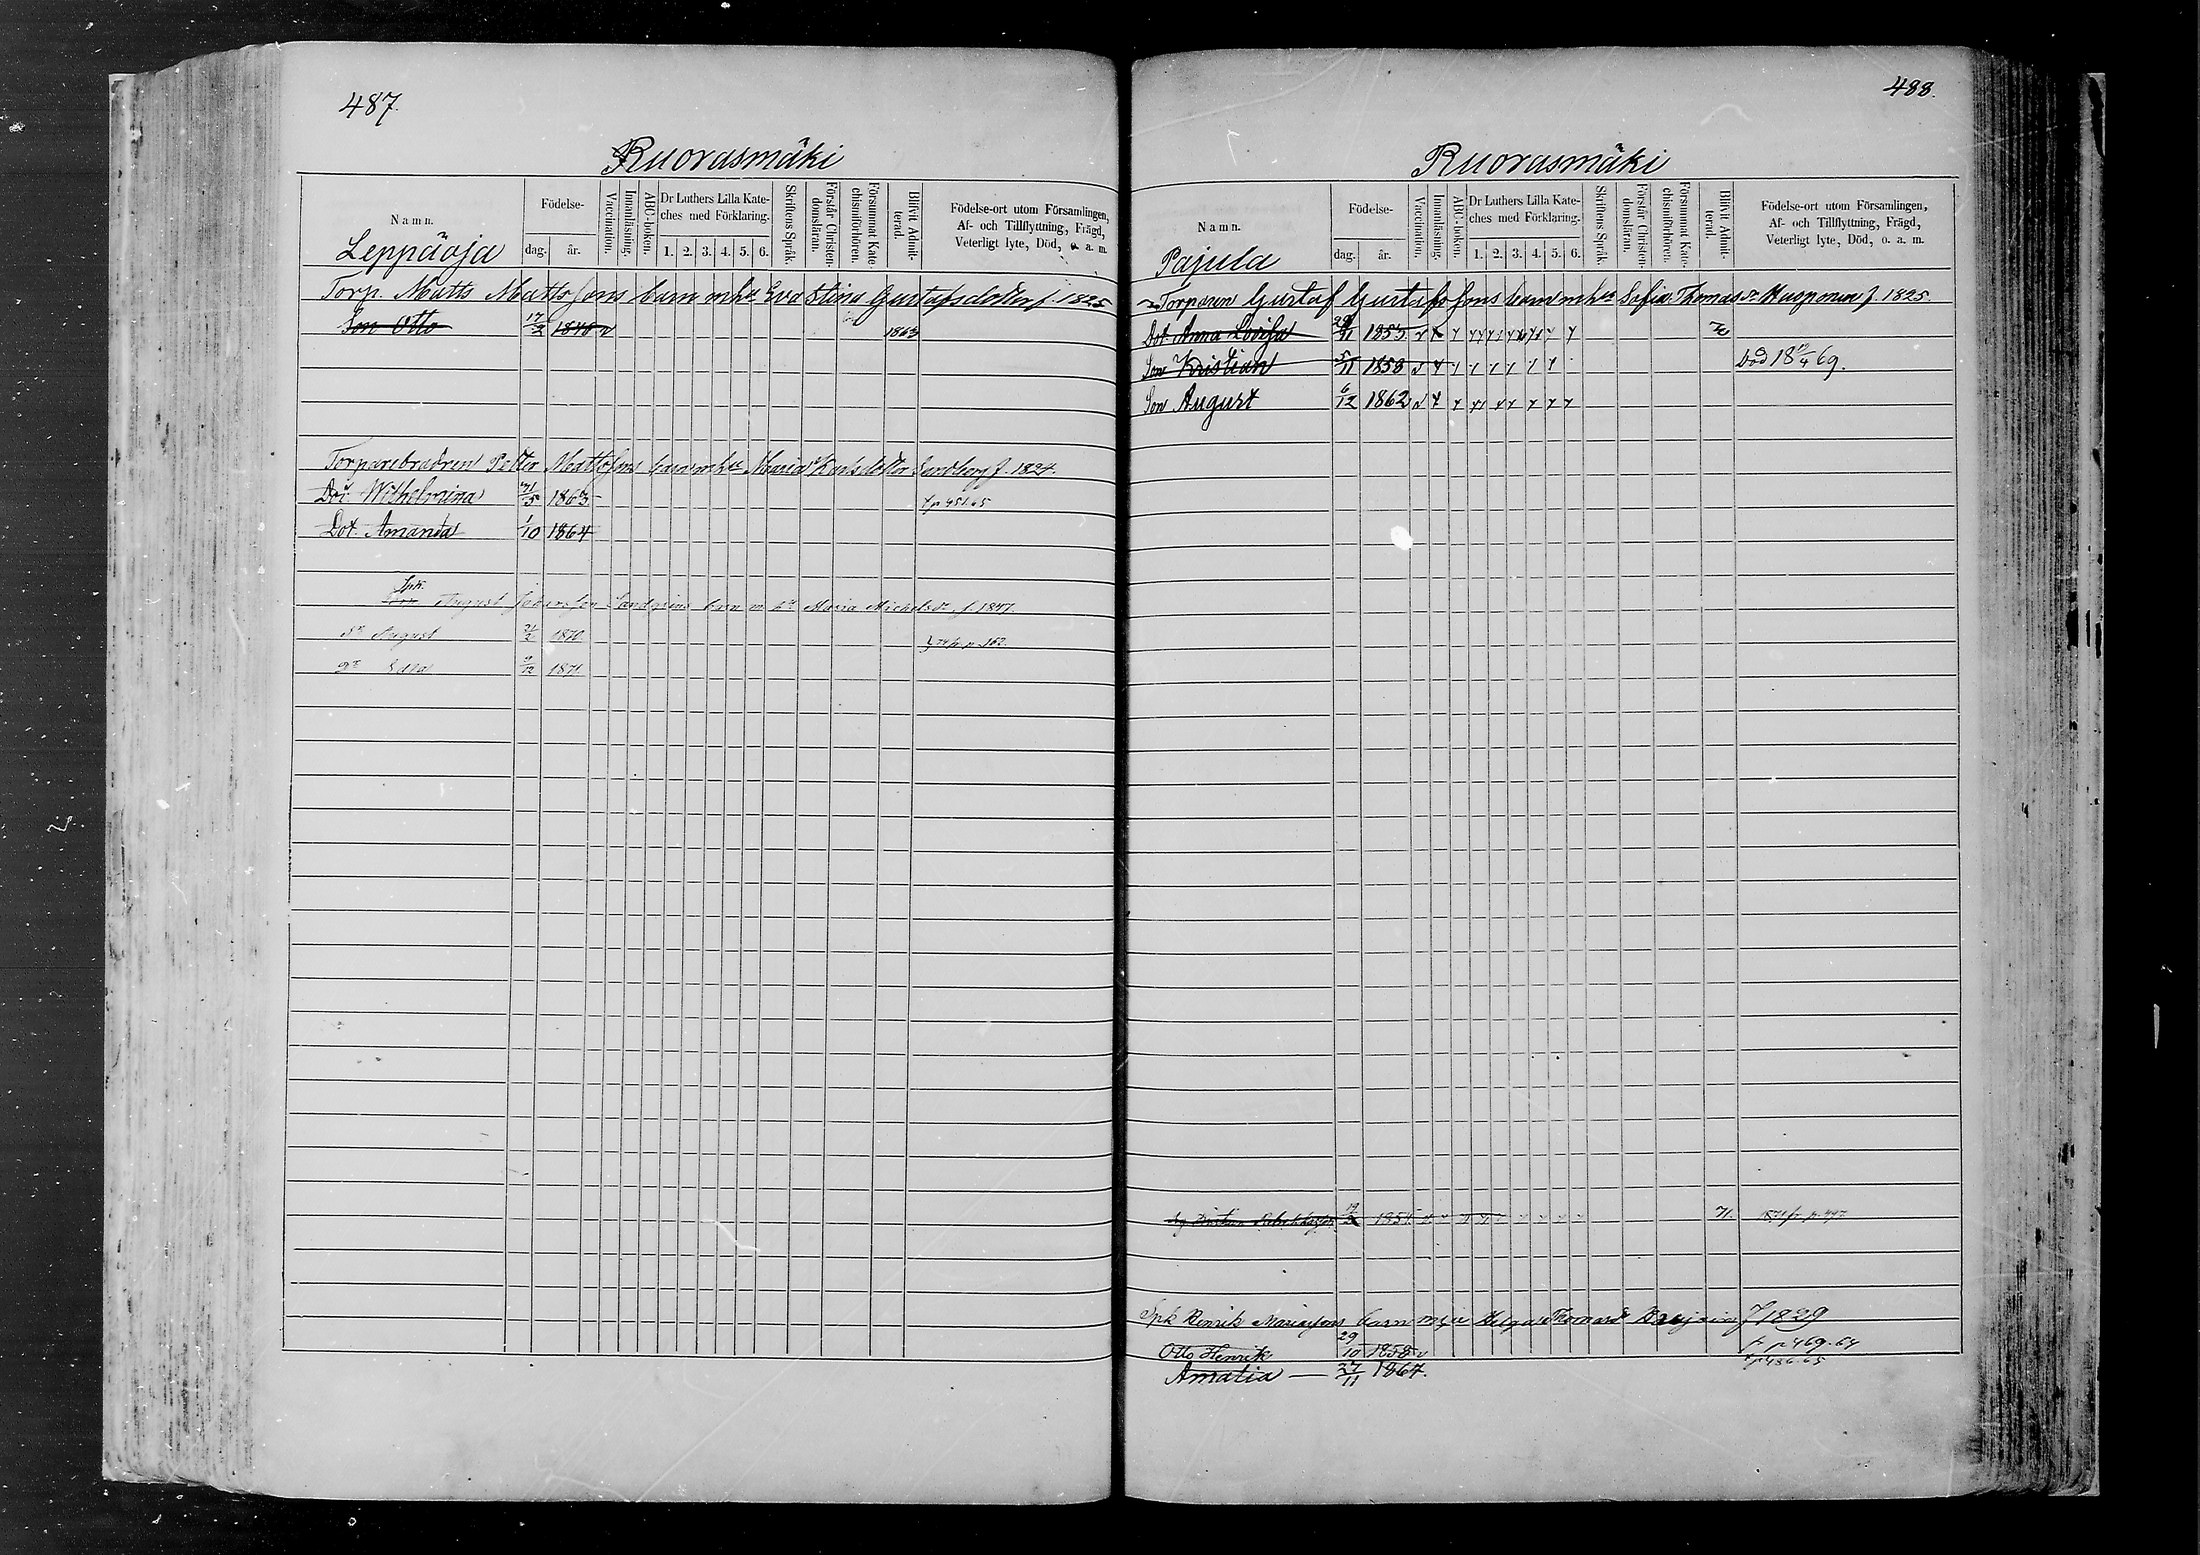 487.
Ruorasmäki
Namn.
Födelse-
dag.
år.
Vaccination.
Innanläsning.
ABC-boken.
Dr Luthers Lilla Kate-
ches med Förklaring.
1. 2. 3. 4. 5. 6.
Skriftens Språk.
Förstår Christen-
domsläran.
Försummat Kate-
chismiförhören.
Blifvit Admit-
terad.
Födelse-ort utom Församlingen,
Af- och Tillflyttning, Frägd,
Veterligt lyte, Död, o. a. m.
Leppäoja
Torp. Matts Mattssons barn m hu Eva Stina Gustafsdotter f. 1825
Son Otto 17/2 1846 v 1863
Torparebrodren Petter Mattssons barn m hu Maria Karlsdotter Sandberg f. 1824.
Dotr Wilhelmina 31/5 1863 fr p 451.65
Dot. Amanda 1/10 1864
Spk.
August Johansson barn m hu Maria Michelsdr. f. 1847.
Sn August 21/2 1870
Dr Edla 9/12 1871
488.
Ruorasmäki
Namn.
Födelse-
dag.
år.
Vaccination.
Innanläsning.
ABC-boken.
Dr Luthers Lilla Kate-
ches med Förklaring.
1. 2. 3. 4. 5. 6.
Skriftens Språk.
Förstår Christen-
domsläran.
Försummat Kate-
chismiförhören.
Blifvit Admit-
terad.
Födelse-ort utom Församlingen,
Af- och Tillflyttning, Frägd,
Veterligt lyte, Död, o. a. m.
Pajula
Torparen Gustaf Gustafssons barn m hu Sofia Thomasdr f. 1825.
Dot. Anna Lovisa 29/11 1853
Son Kristian 5/11 1858 Död 18 19/4 69.
Son August 6/12 1862
71. 1871 fr p. 497
Spk Henrik Mariassons barn m Helga Thomasdr f 1829
Otto Henrik 29/10 1858 v fr p 469.64
Amalia — 27/11 1864. fr p 486.65